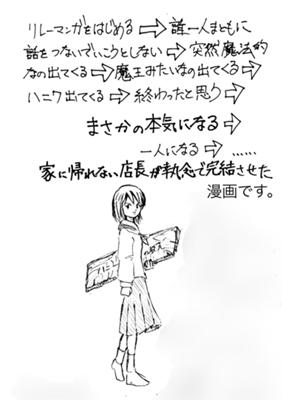 リレーマンガをはじめる⇨誰一人まともに
話をつないでいこうとしない⇨突然魔法的
なの出てくる⇨魔王みたいなの出てくる⇨
ハニワ出てくる⇨終わったと思り⇨
まさかの本気になる⇨
一人になる⇨……
家に帰れない店長が執念で完結させた
漫画です。